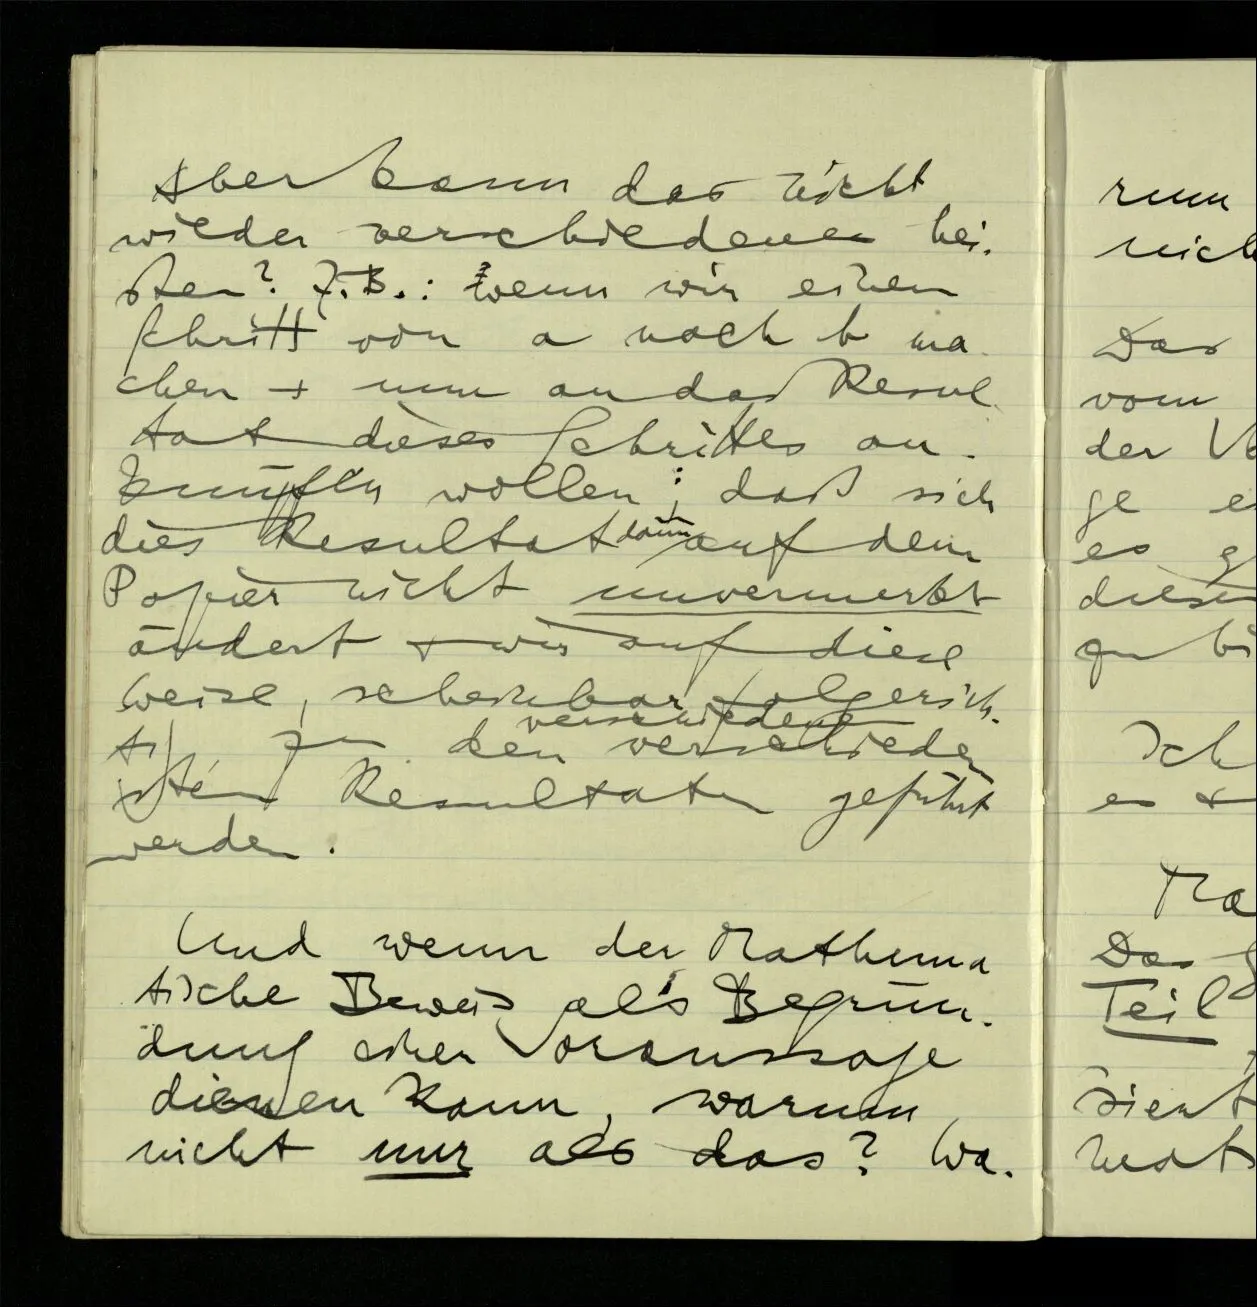 Aber kann das nicht
wieder verschiedenes hei-
ßen? Z.B.: wenn wir einen
Schritt von a nach b ma-
chen + nun an das Resul-
tat dieses Schrittes an-
knüpfen wollen; daß sich
dies Resultat dann auf dem
Papier nicht unvermerkt
ändert + wir auf diese
Weise, scheinbar folgerich-
tig zu
verschiedene
den verschieden
sten Resultaten geführt
werden.
Und wenn der Mathema
tische Beweis als Begrün-
dung einer Voraussage
dienen kann, warum
nicht nur als das? Wa-
rum
nich
Das
vom
der
ge
es
diesen
zu
Ich
es +
Das
Teil